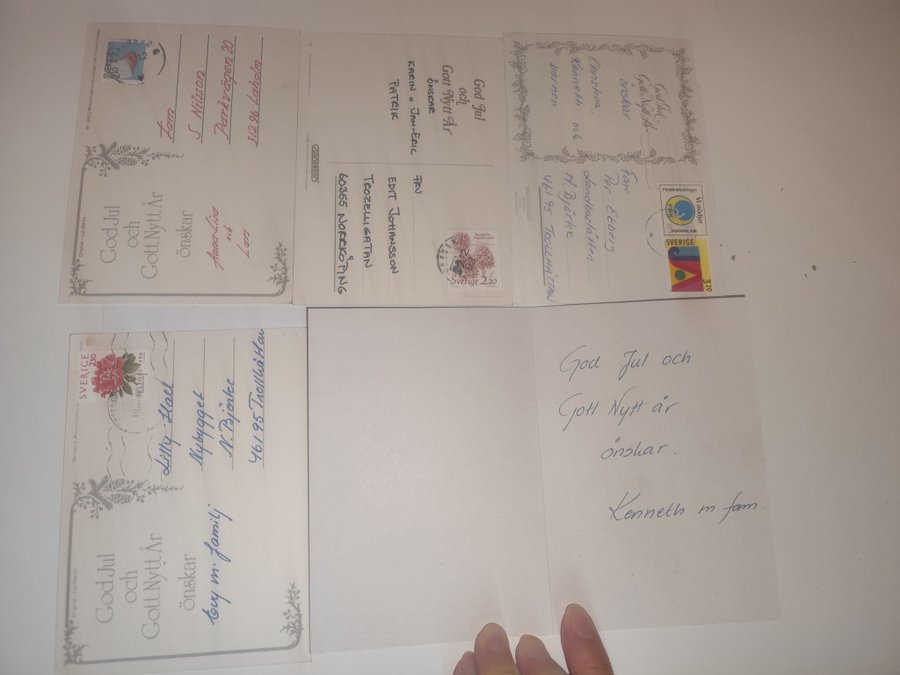 God Jul
och
Gott Nytt År
önskar
Anna-Lisa
och
Lars
Fam
S Nilsson
312 96 Laholm
God Jul
och
Gott Nytt År
ÖNSKAR
KARIN o JAN-ERIC
PATRIK
FRU
EDIT JOHANSSON
TROZELLIGATAN
60355 NORRKÖPING
Sverige 2.10
God Jul
Gott Nytt År
önskar
Christina,
Kenneth och
barnen
Fam
Per Ekberg
N. Björke
461 95 TROLLHÄTTAN
SVERIGE
God Jul
och
Gott Nytt År
önskar
Evy m. familj
SVERIGE
Lilly Hall
Nybygget
N. Björke
461 95 Trollhättan
God Jul och
Gott Nytt år
önskar.
Kenneth m fam.